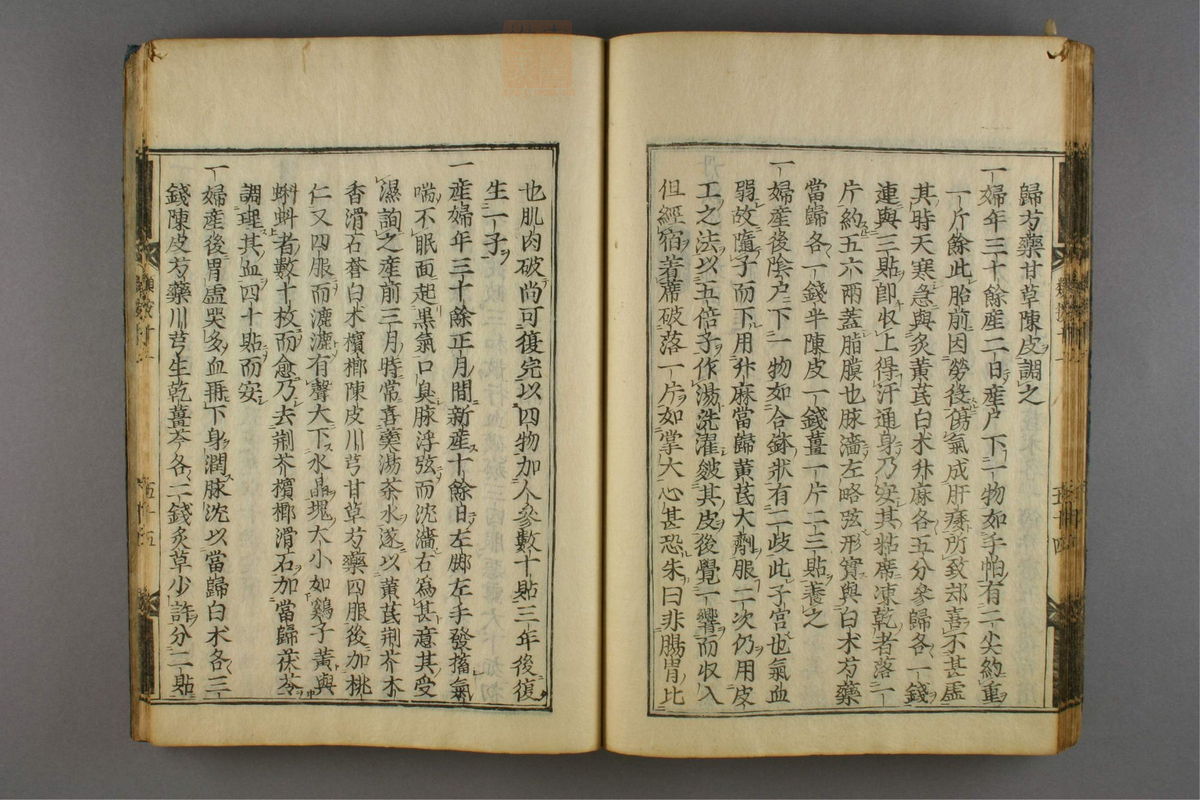 歸芍藥甘草陳皮調之
一婦年三十餘産二日産户下一物如手帕有二尖約重
一斤餘此胎前因勞役傷氣成肝痿所致却喜不甚虚
其時天寒急與炙黄芪白术升麻各五分參歸各一錢
連與三貼即収上得汗通身乃安其粘席凍乾者落一
片約五六兩蓋脂膜也脉濇左略弦形實與白术芍藥
當歸各一錢半陳皮一錢薑一片二三貼養之
一婦産後陰户下一物如合鉢狀有二歧此子宮也氣血
弱故隨子而下用升麻當歸黄芪大劑服二次仍用皮
工之法以五倍子作湯洗濯皴其皮後覺一響而収入
但經宿著蓆破落一片如掌大心甚恐朱曰非腸胃比
也肌肉破尚可復完以四物加人參數十貼三年後復
生一子
一産婦年三十餘正月間新産十餘日左脚左手發搐氣
喘不眠面起黒氣口臭脉浮弦而沈濇右爲甚意其受
濕詢之産前三月時常喜羹湯茶水遂以黄芪荆芥木
香滑石蒼白术檳榔陳皮川芎甘草芍藥四服後加桃
仁又四服而漉漉有聲大下水晶塊大小如鷄子黄與
蝌蚪者數十枚而愈乃去荆芥檳榔滑石加當歸茯苓
調理其血四十貼而安
一婦産後胃虚哭多血再下身潤脉沈以當歸白术各三
錢陳皮芍藥川芎生乾薑芩各二錢炙草少許分二貼
五十四
五十五